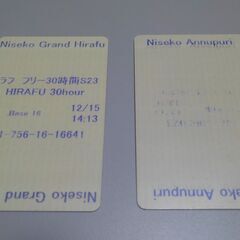 Niseko Grand Hirafu
ラフ フリー30時間S23
HIRAFU 30hour
12/15
Base 16
14:13
-756-16-16641
Niseko Grand
Niseko Annupuri
ko Annupuri